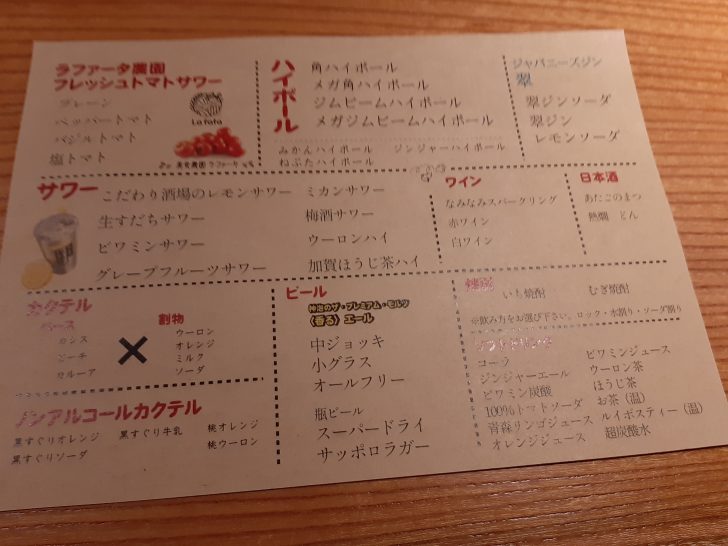 ラファータ農園
フレッシュトマトサワー
プレーン
ペッパートマト
バジルトマト
塩トマト
La fata
ハイボール
角ハイボール
メガ角ハイボール
ジムビームハイボール
メガジムビームハイボール
みかんハイボール
ジンジャーハイボール
ねぶたハイボール
ジャパニーズジン
翠
翠ジンソーダ
翠ジン
レモンソーダ
サワー
こだわり酒場のレモンサワー
ミカンサワー
生すだちサワー
梅酒サワー
ビワミンサワー
ウーロンハイ
グレープフルーツサワー
加賀ほうじ茶ハイ
ワイン
なみなみスパークリング
赤ワイン
白ワイン
日本酒
あたごのまつ
熱燗 とん
カクテル
ベース
カシス
ピーチ
カルーア
×
割物
ウーロン
オレンジ
ミルク
ソーダ
ノンアルコールカクテル
黒すぐりオレンジ
黒すぐり牛乳
桃オレンジ
黒すぐりソーダ
桃ウーロン
ビール
神泡のザ・プレミアム・モルツ
〈香る〉エール
中ジョッキ
小グラス
オールフリー
瓶ビール
スーパードライ
サッポロラガー
焼酎
いも焼酎
むぎ焼酎
※飲み方をお選び下さい。ロック・水割り・ソーダ割り
ソフトドリンク
コーラ
ジンジャーエール
ビワミン炭酸
100%トマトソーダ
青森リンゴジュース
オレンジジュース
ビワミンジュース
ウーロン茶
ほうじ茶
お茶（温）
ルイボスティー（温）
超炭酸水